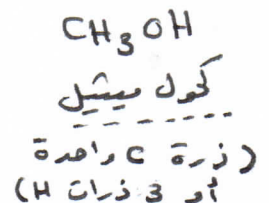 CH3OH
كحول ميثيل
(ذرة C واحدة
أو 3 ذرات H)